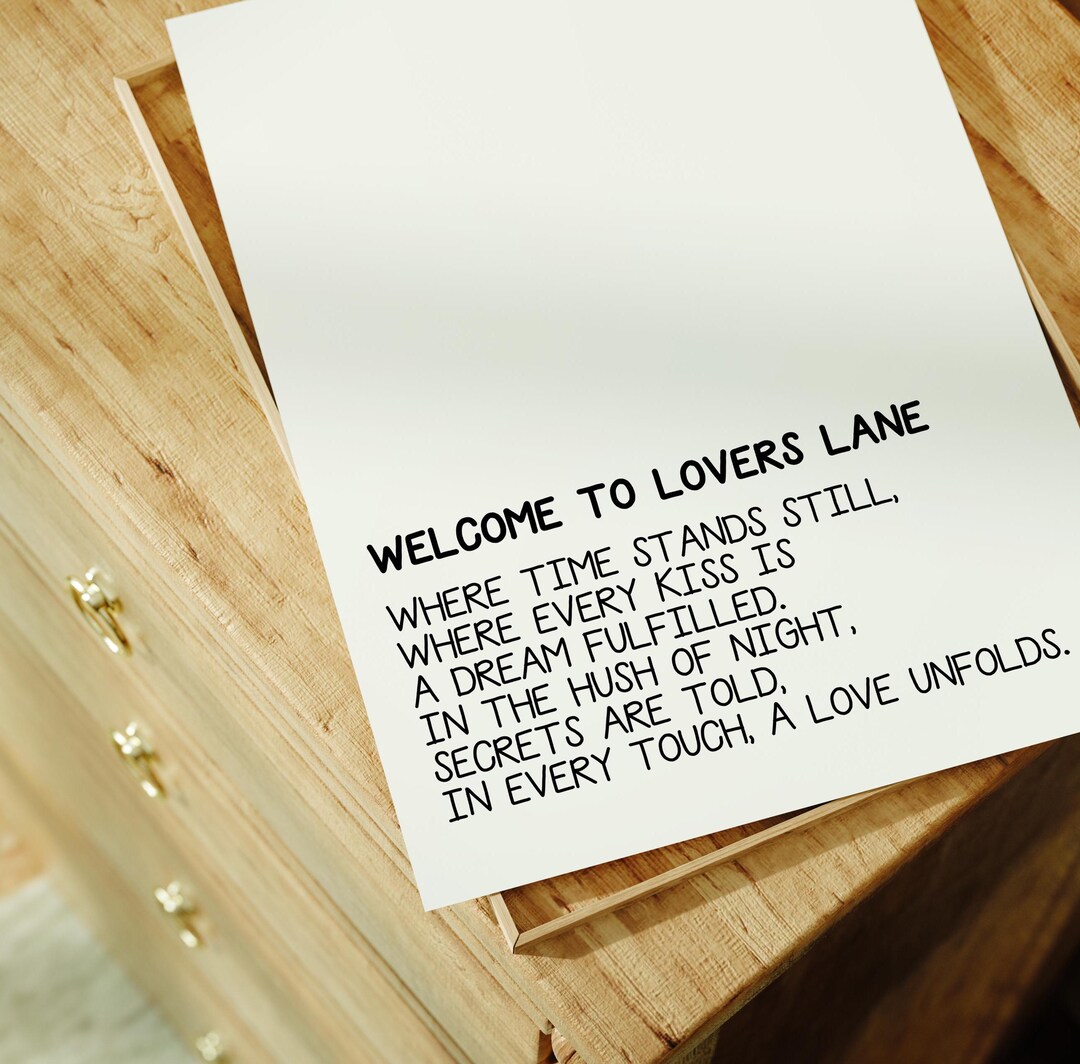 WELCOME TO LOVERS LANE
WHERE TIME STANDS STILL,
WHERE EVERY KISS IS
A DREAM FULFILLED.
IN THE HUSH OF NIGHT,
SECRETS ARE TOLD,
IN EVERY TOUCH, A LOVE UNFOLDS.